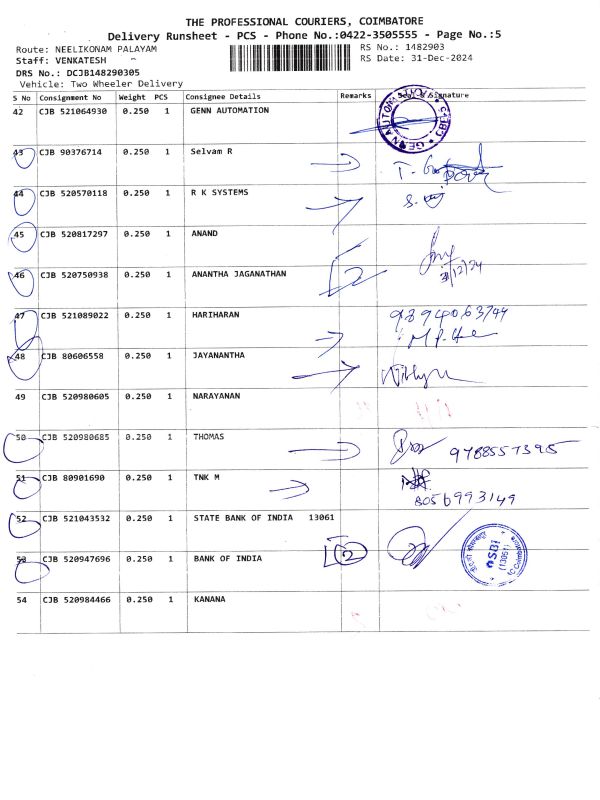 THE PROFESSIONAL COURIERS, COIMBATORE
Delivery Runsheet - PCS - Phone No.:0422-3505555 - Page No.:5
Route: NEELIKONAM PALAYAM
RS No.: 1482903
Staff: VENKATESH
RS Date: 31-Dec-2024
DRS No.: DCJB148290305
Vehicle: Two Wheeler Delivery
S No Consignment No Weight PCS Consignee Details Remarks Seal & Signature
42 CJB 521064930 0.250 1 GENN AUTOMATION
43 CJB 90376714 0.250 1 Selvam R
44 CJB 520570118 0.250 1 R K SYSTEMS
45 CJB 520817297 0.250 1 ANAND
31/12/24
46 CJB 520750938 0.250 1 ANANTHA JAGANATHAN 2
47 CJB 521089022 0.250 1 HARIHARAN
48 CJB 80606558 0.250 1 JAYANANTHA
49 CJB 520980605 0.250 1 NARAYANAN
50 CJB 520980685 0.250 1 THOMAS 9788557395
51 CJB 80901690 0.250 1 TNK M
8056993149
52 CJB 521043532 0.250 1 STATE BANK OF INDIA 13061
53 CJB 520947696 0.250 1 BANK OF INDIA 2
SBI
54 CJB 520984466 0.250 1 KANANA